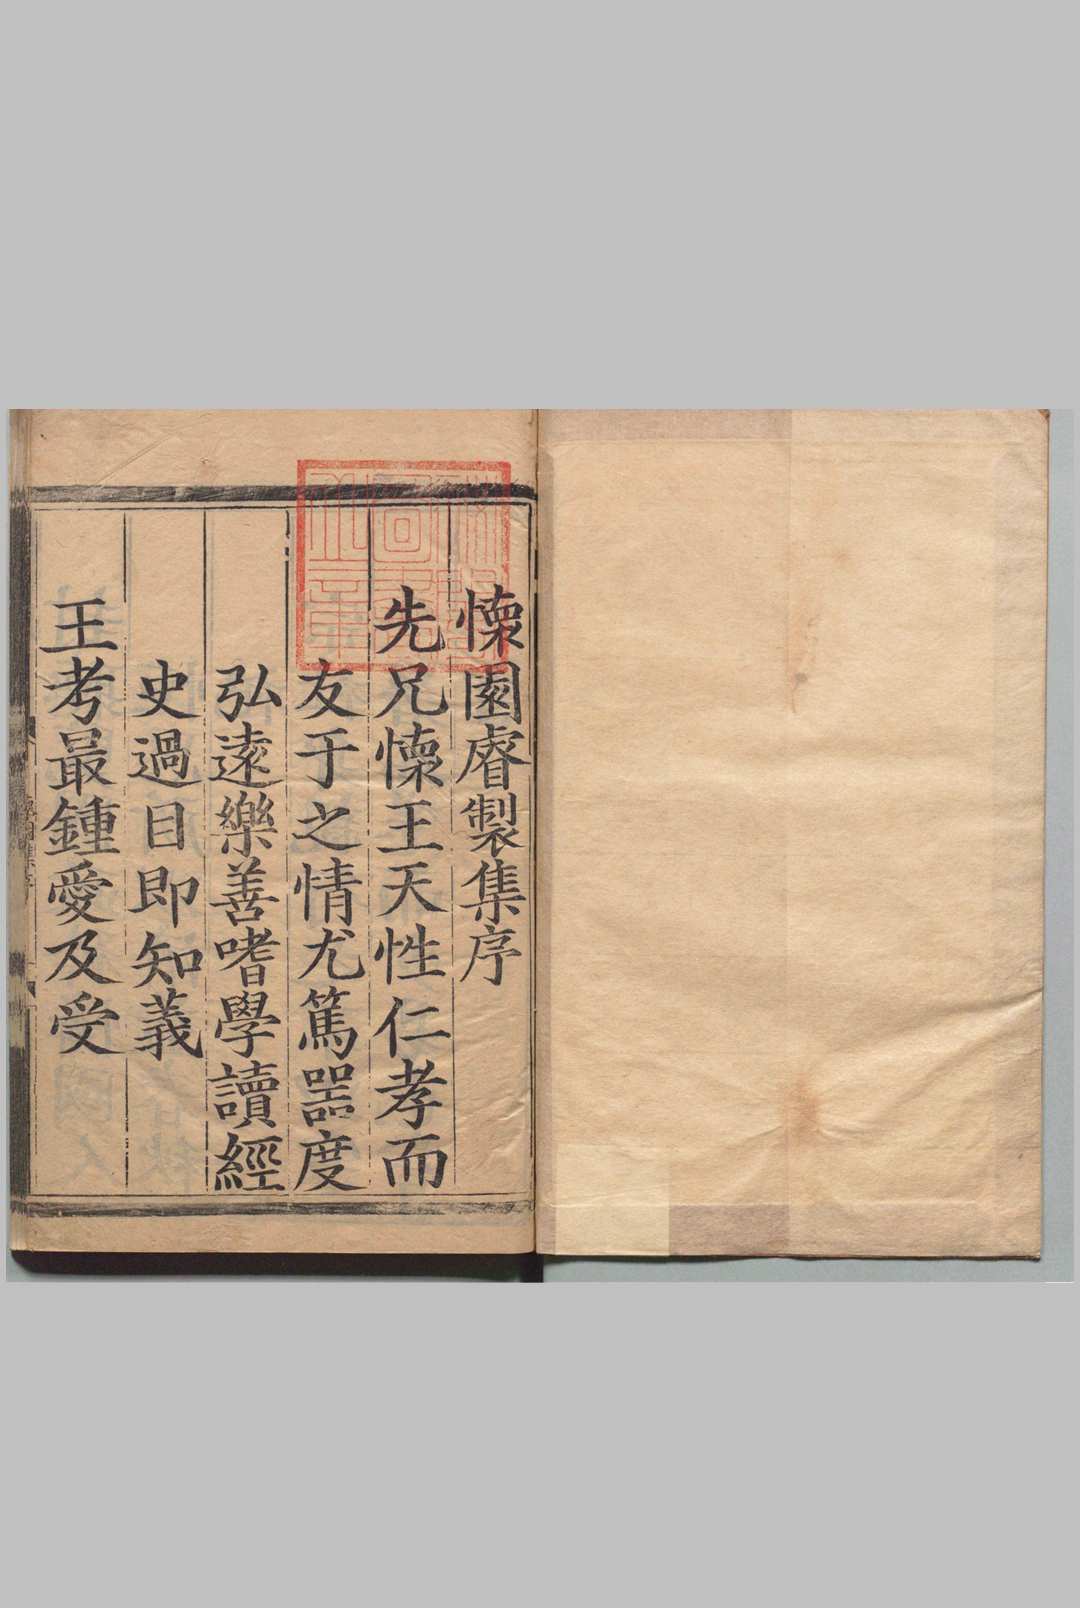 懐園睿製集序
先兄懐王天性仁孝而
友于之情尤篤器度
弘遠樂善嗜學讀經
史過目即知義
王考最鍾愛及受